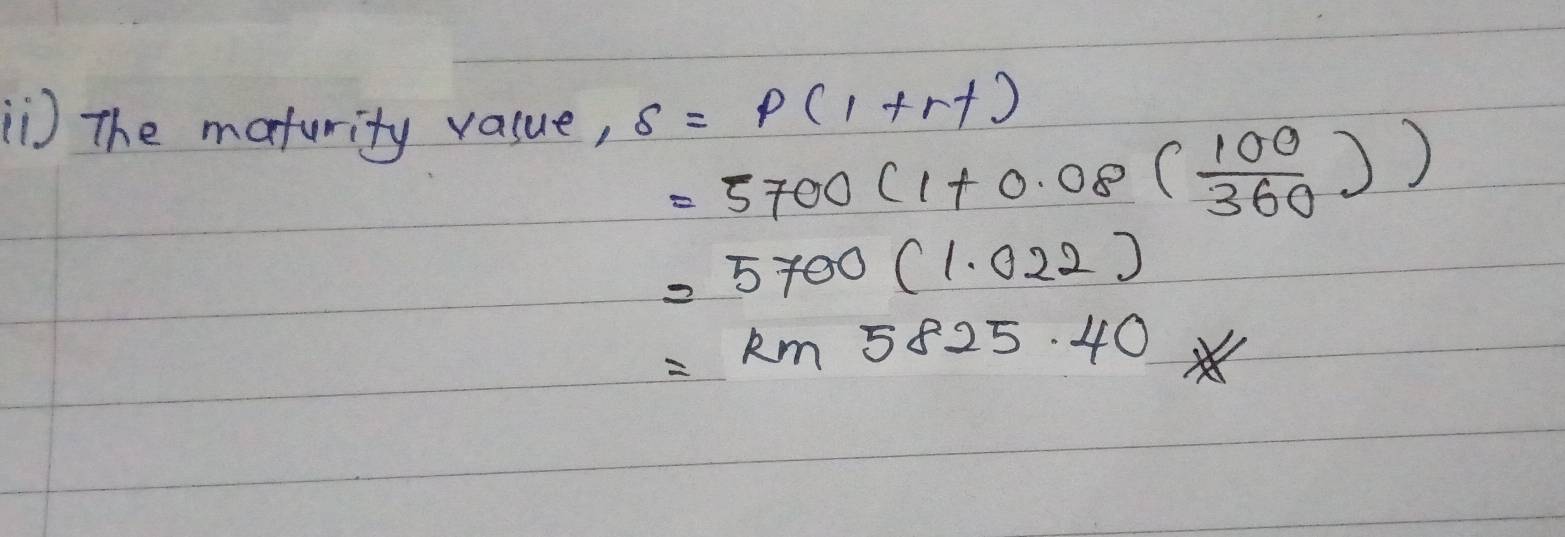 ii) The maturity value, S = P(1+rt)
= 5700 (1+0.08 (100/360))
= 5700 (1.022)
= Rm 5825.40